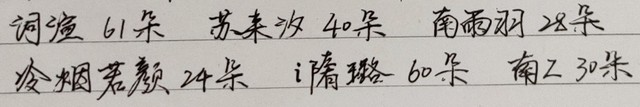 词渲 61朵 苏来汐 40朵 南雨羽 28朵
冷烟若颜 24朵 隋璐 60朵 南乙 30朵